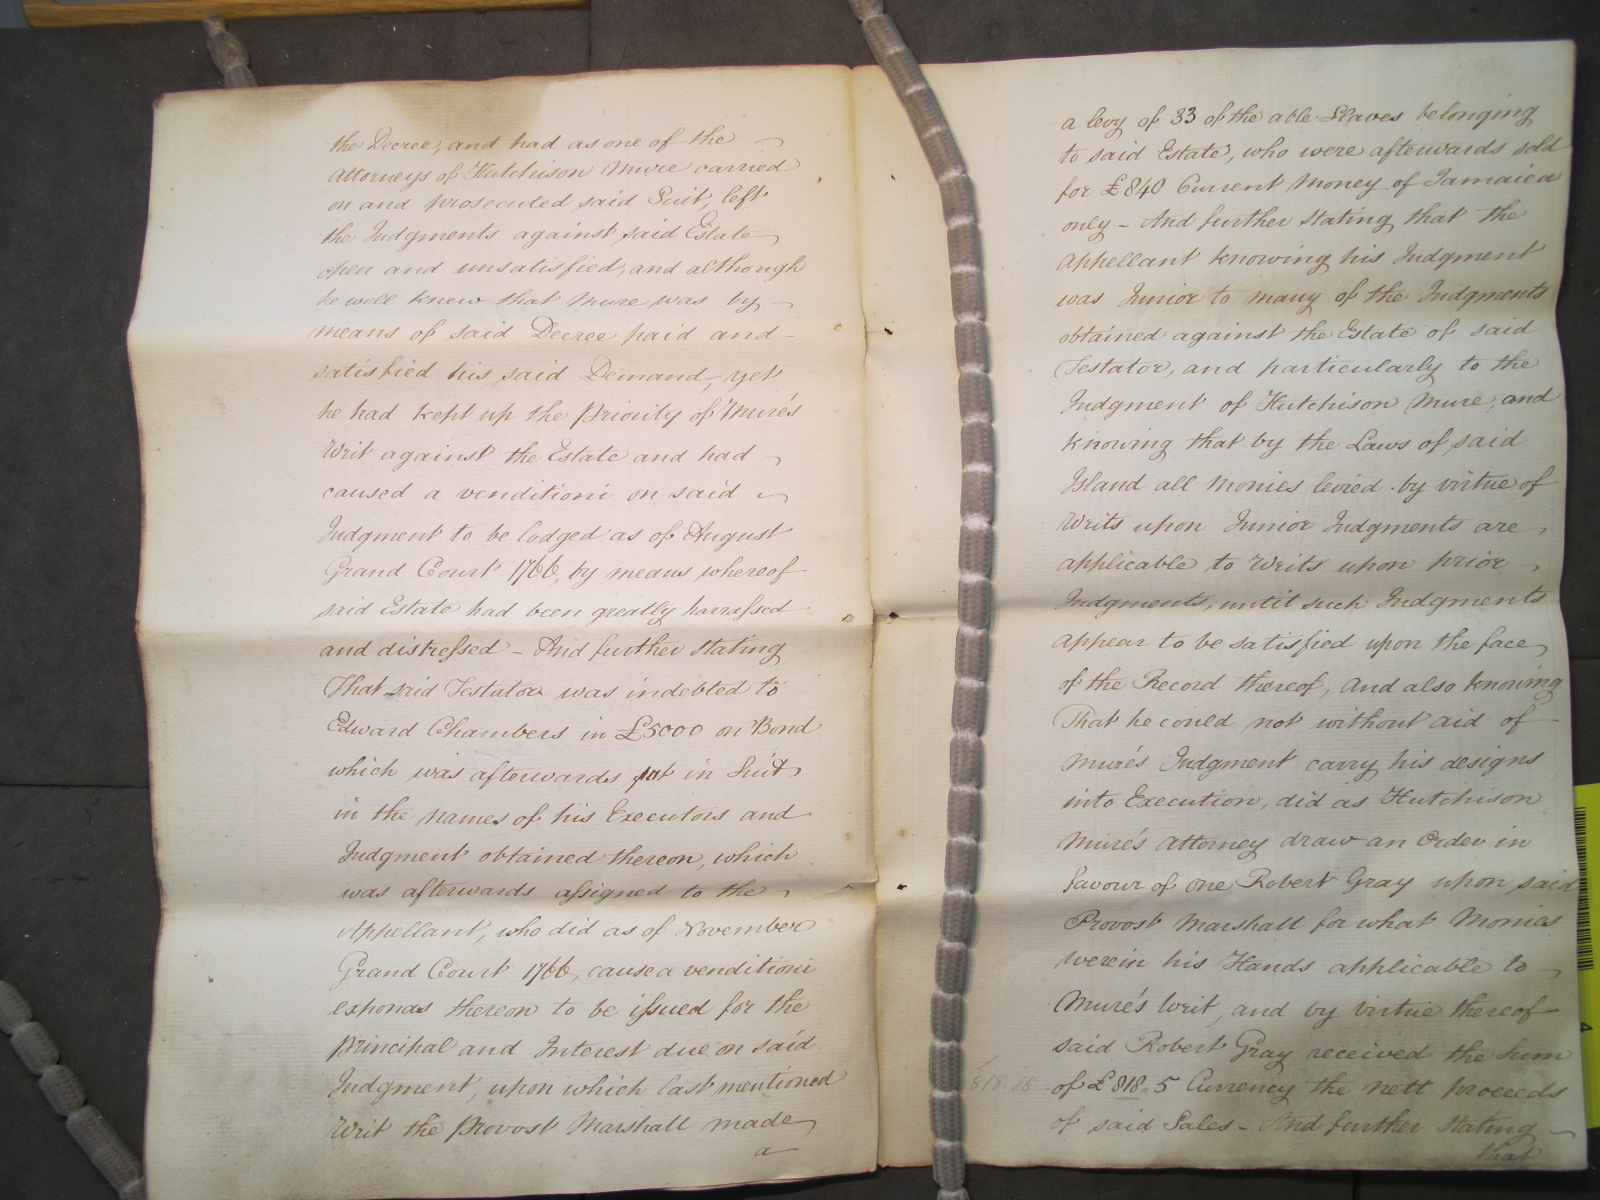 the Decree, and had as one of the
Attorneys of Hutchison Mure carried
on and prosecuted said Suit, left
the Judgments against said Estate
open and unsatisfied, and although
he well knew that Mure was by
means of said Decree paid and
satisfied his said Demand, yet
he had kept up the Priority of Mure's
Writ against the Estate and had
caused a venditioni on said
Judgment to be lodged as of August
Grand Court 1766, by means whereof
said Estate had been greatly harrassed
and distressed – And further stating
That said Testator was indebted to
Edward Chambers in £5000 on Bond
which was afterwards put in Suit
in the names of his Executors and
Judgment obtained thereon, which
was afterwards assigned to the
Appellant, who did as of November
Grand Court 1766, cause a venditioni
exponas thereon to be issued for the
Principal and Interest due on said
Judgment, upon which last mentioned
Writ the Provost Marshall made
a
a levy of 33 of the able Slaves belonging
to said Estate, who were afterwards sold
for £840 Current Money of Jamaica
only – And further stating that the
Appellant knowing his Judgment
was Junior to many of the Judgments
obtained against the Estate of said
Testator, and particularly to the
Judgment of Hutchison Mure, and
knowing that by the Laws of said
Island all Monies levied by virtue of
Writs upon Junior Judgments are
applicable to Writs upon prior
Judgments, until such Judgments
appear to be satisfied upon the face
of the Record thereof, And also knowing
That he could not without aid of
Mure's Judgment carry his designs
into Execution, did as Hutchison
Mure's Attorney draw an Order in
favour of one Robert Gray upon said
Provost Marshall for what Monies
were in his Hands applicable to
Mure's Writ, and by virtue thereof
said Robert Gray received the Sum
of £818.5 Currency the nett proceeds
of said Sales – And further stating
that